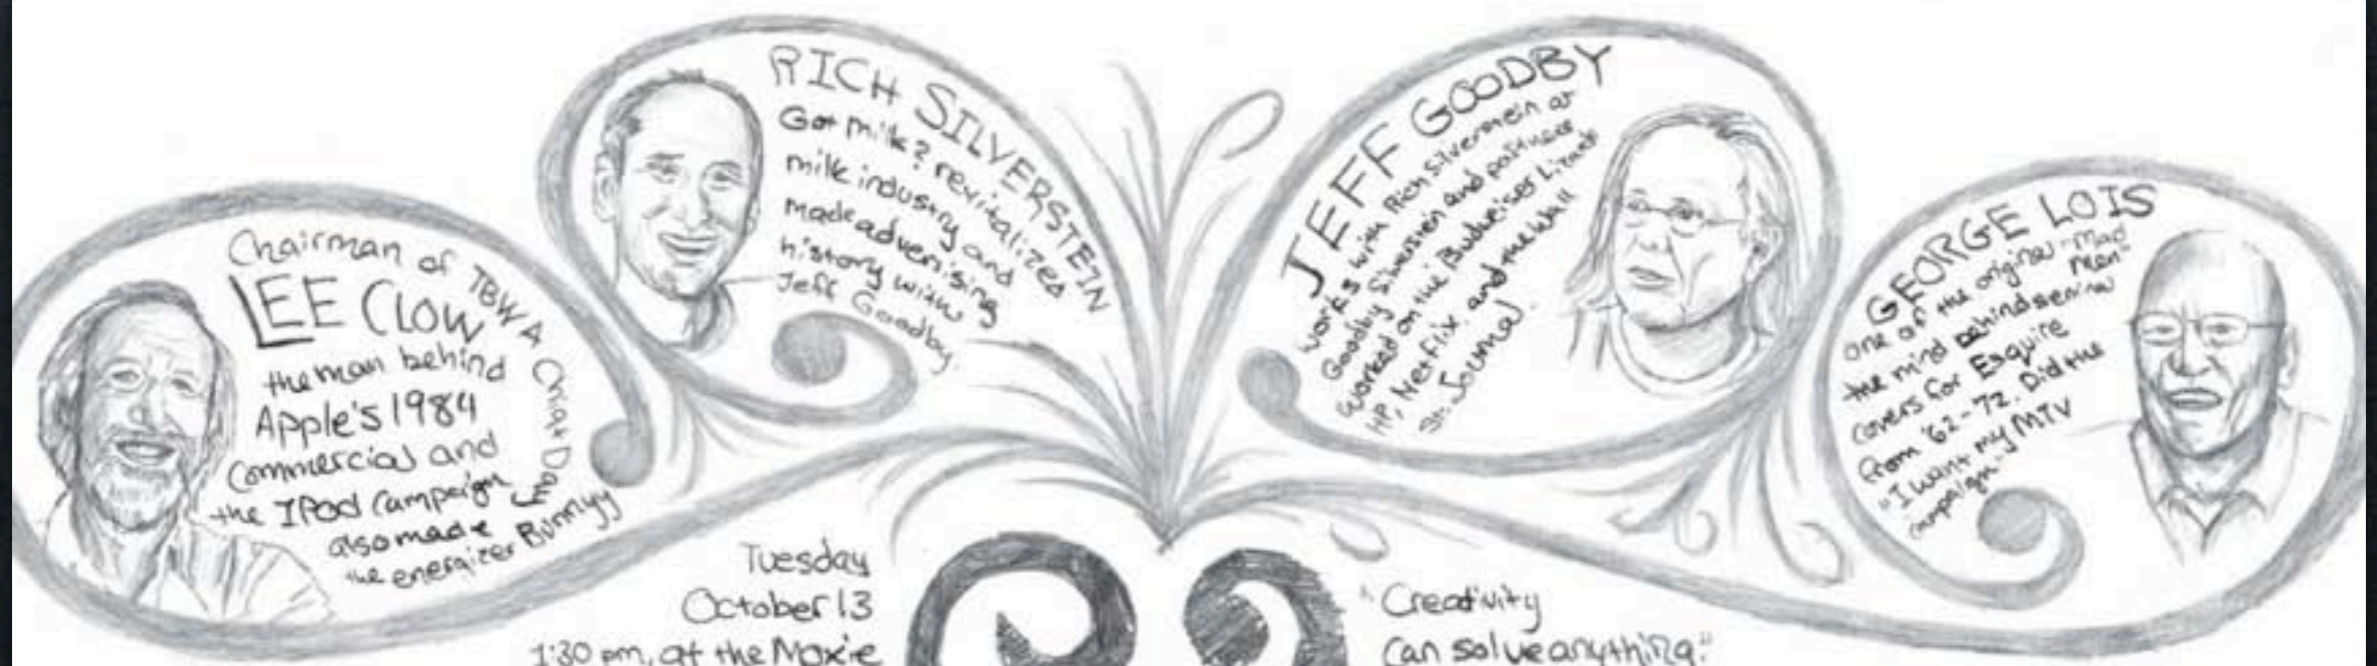 Chairman of TBWA Chiat Day
LEE CLOW
the man behind
Apple's 1984
Commercial and
the IPod campaign
also made
the energizer Bunnyy
RICH SILVERSTEIN
Got milk? revitalized
milk industry and
made adverising
history with
Jeff Goodby.
JEFF GOODBY
works with Rich silverstein at
Goodby Silverstein and partners
worked on the Budweiser Lizards
HP, Netflix and the Wall
St. Journal.
GEORGE LOIS
one of the original "Mad
Men"
the mind behind
covers for Esquire
from '62-'72. Did the
"I want my MTV
campaign"
Tuesday
October 13
1:30 pm, at the Moxie
"Creativity
can solve anything."